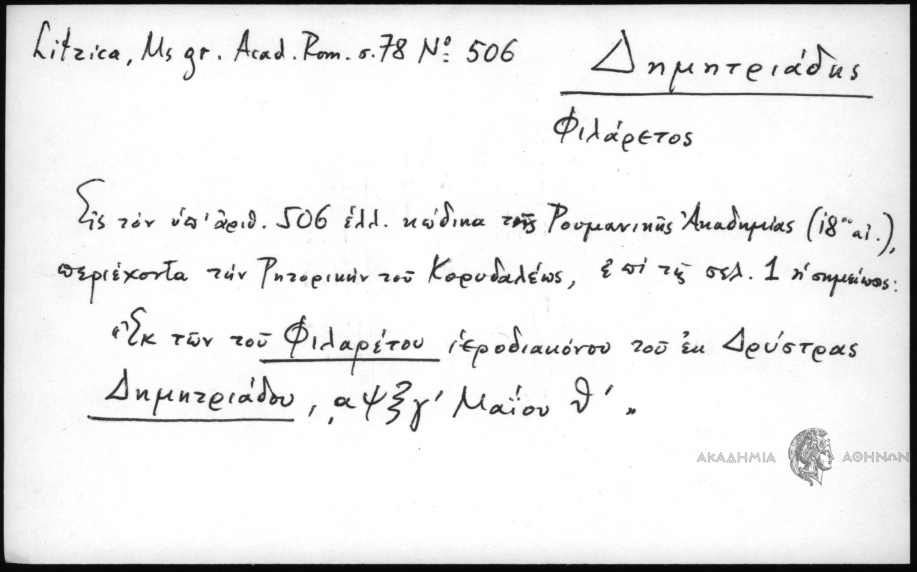 Litzica, Ms gr. Acad. Rom. σ. 78 Nº 506
Δημητριάδης
Φιλάρετος
Εἰς τὸν ὑπ' ἀριθ. 506 ἑλλ. κώδικα τῆς Ρουμανικῆς Ἀκαδημίας (18ου αἰ.),
περιέχοντα τὴν Ρητορικὴν τοῦ Κορυδαλέως, ἐπὶ τῆς σελ. 1 ἡ σημείωσις:
«Ἐκ τῶν τοῦ Φιλαρέτου ἱεροδιακόνου τοῦ ἐκ Δρύστρας
Δημητριάδου, ͵αψξγ' Μαΐου θ'»
ΑΚΑΔΗΜΙΑ ΑΘΗΝΩΝ